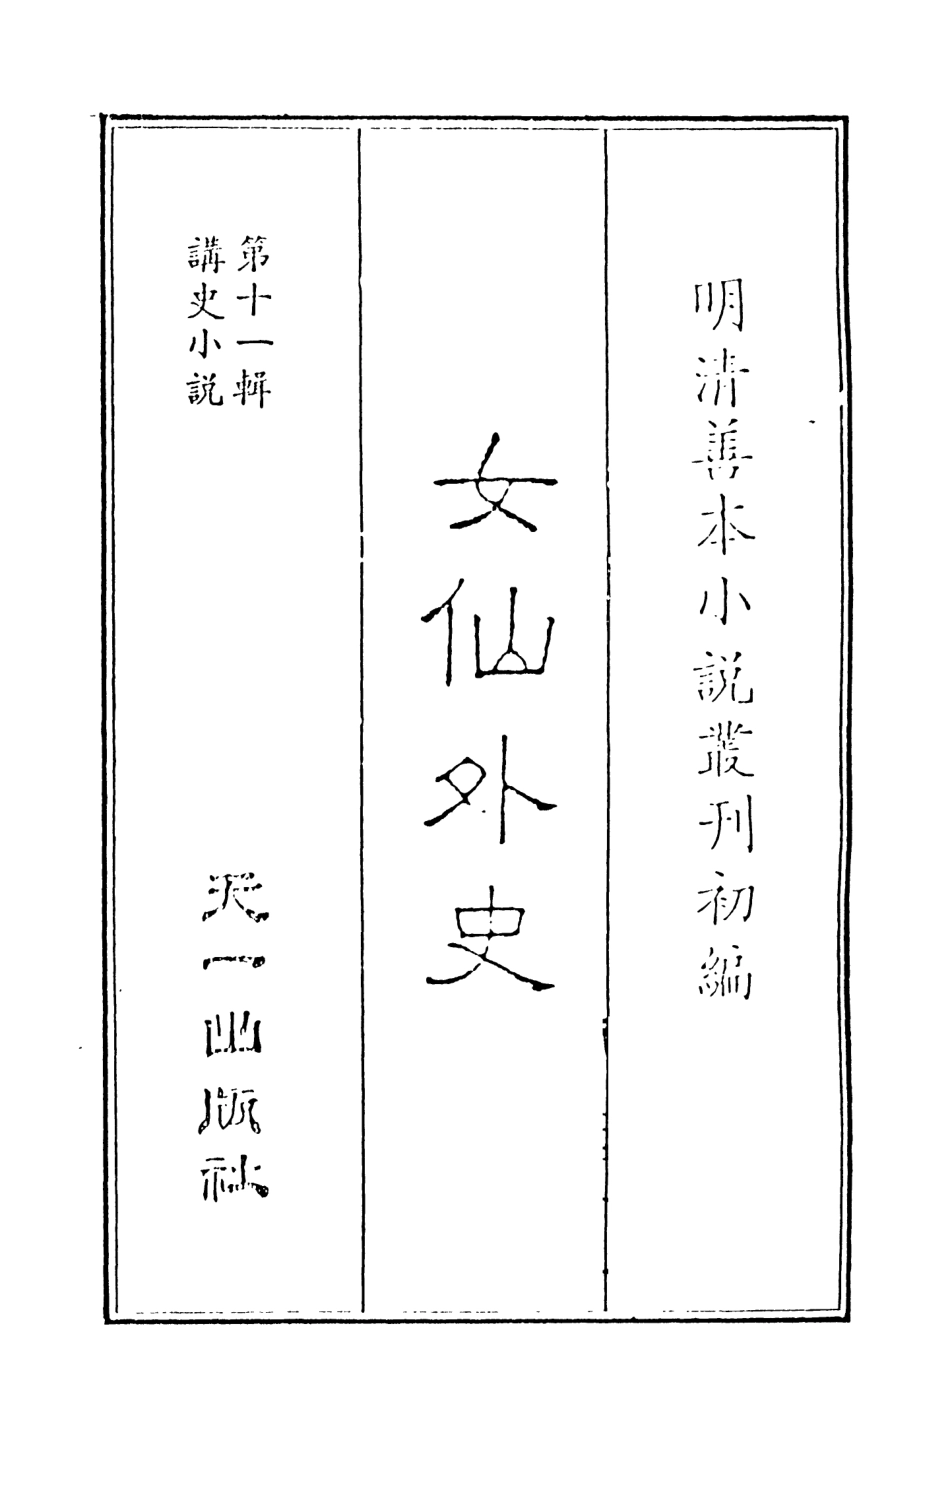 明清善本小説叢刊初編
女仙外史
第十一輯
講史小説
天一出版社